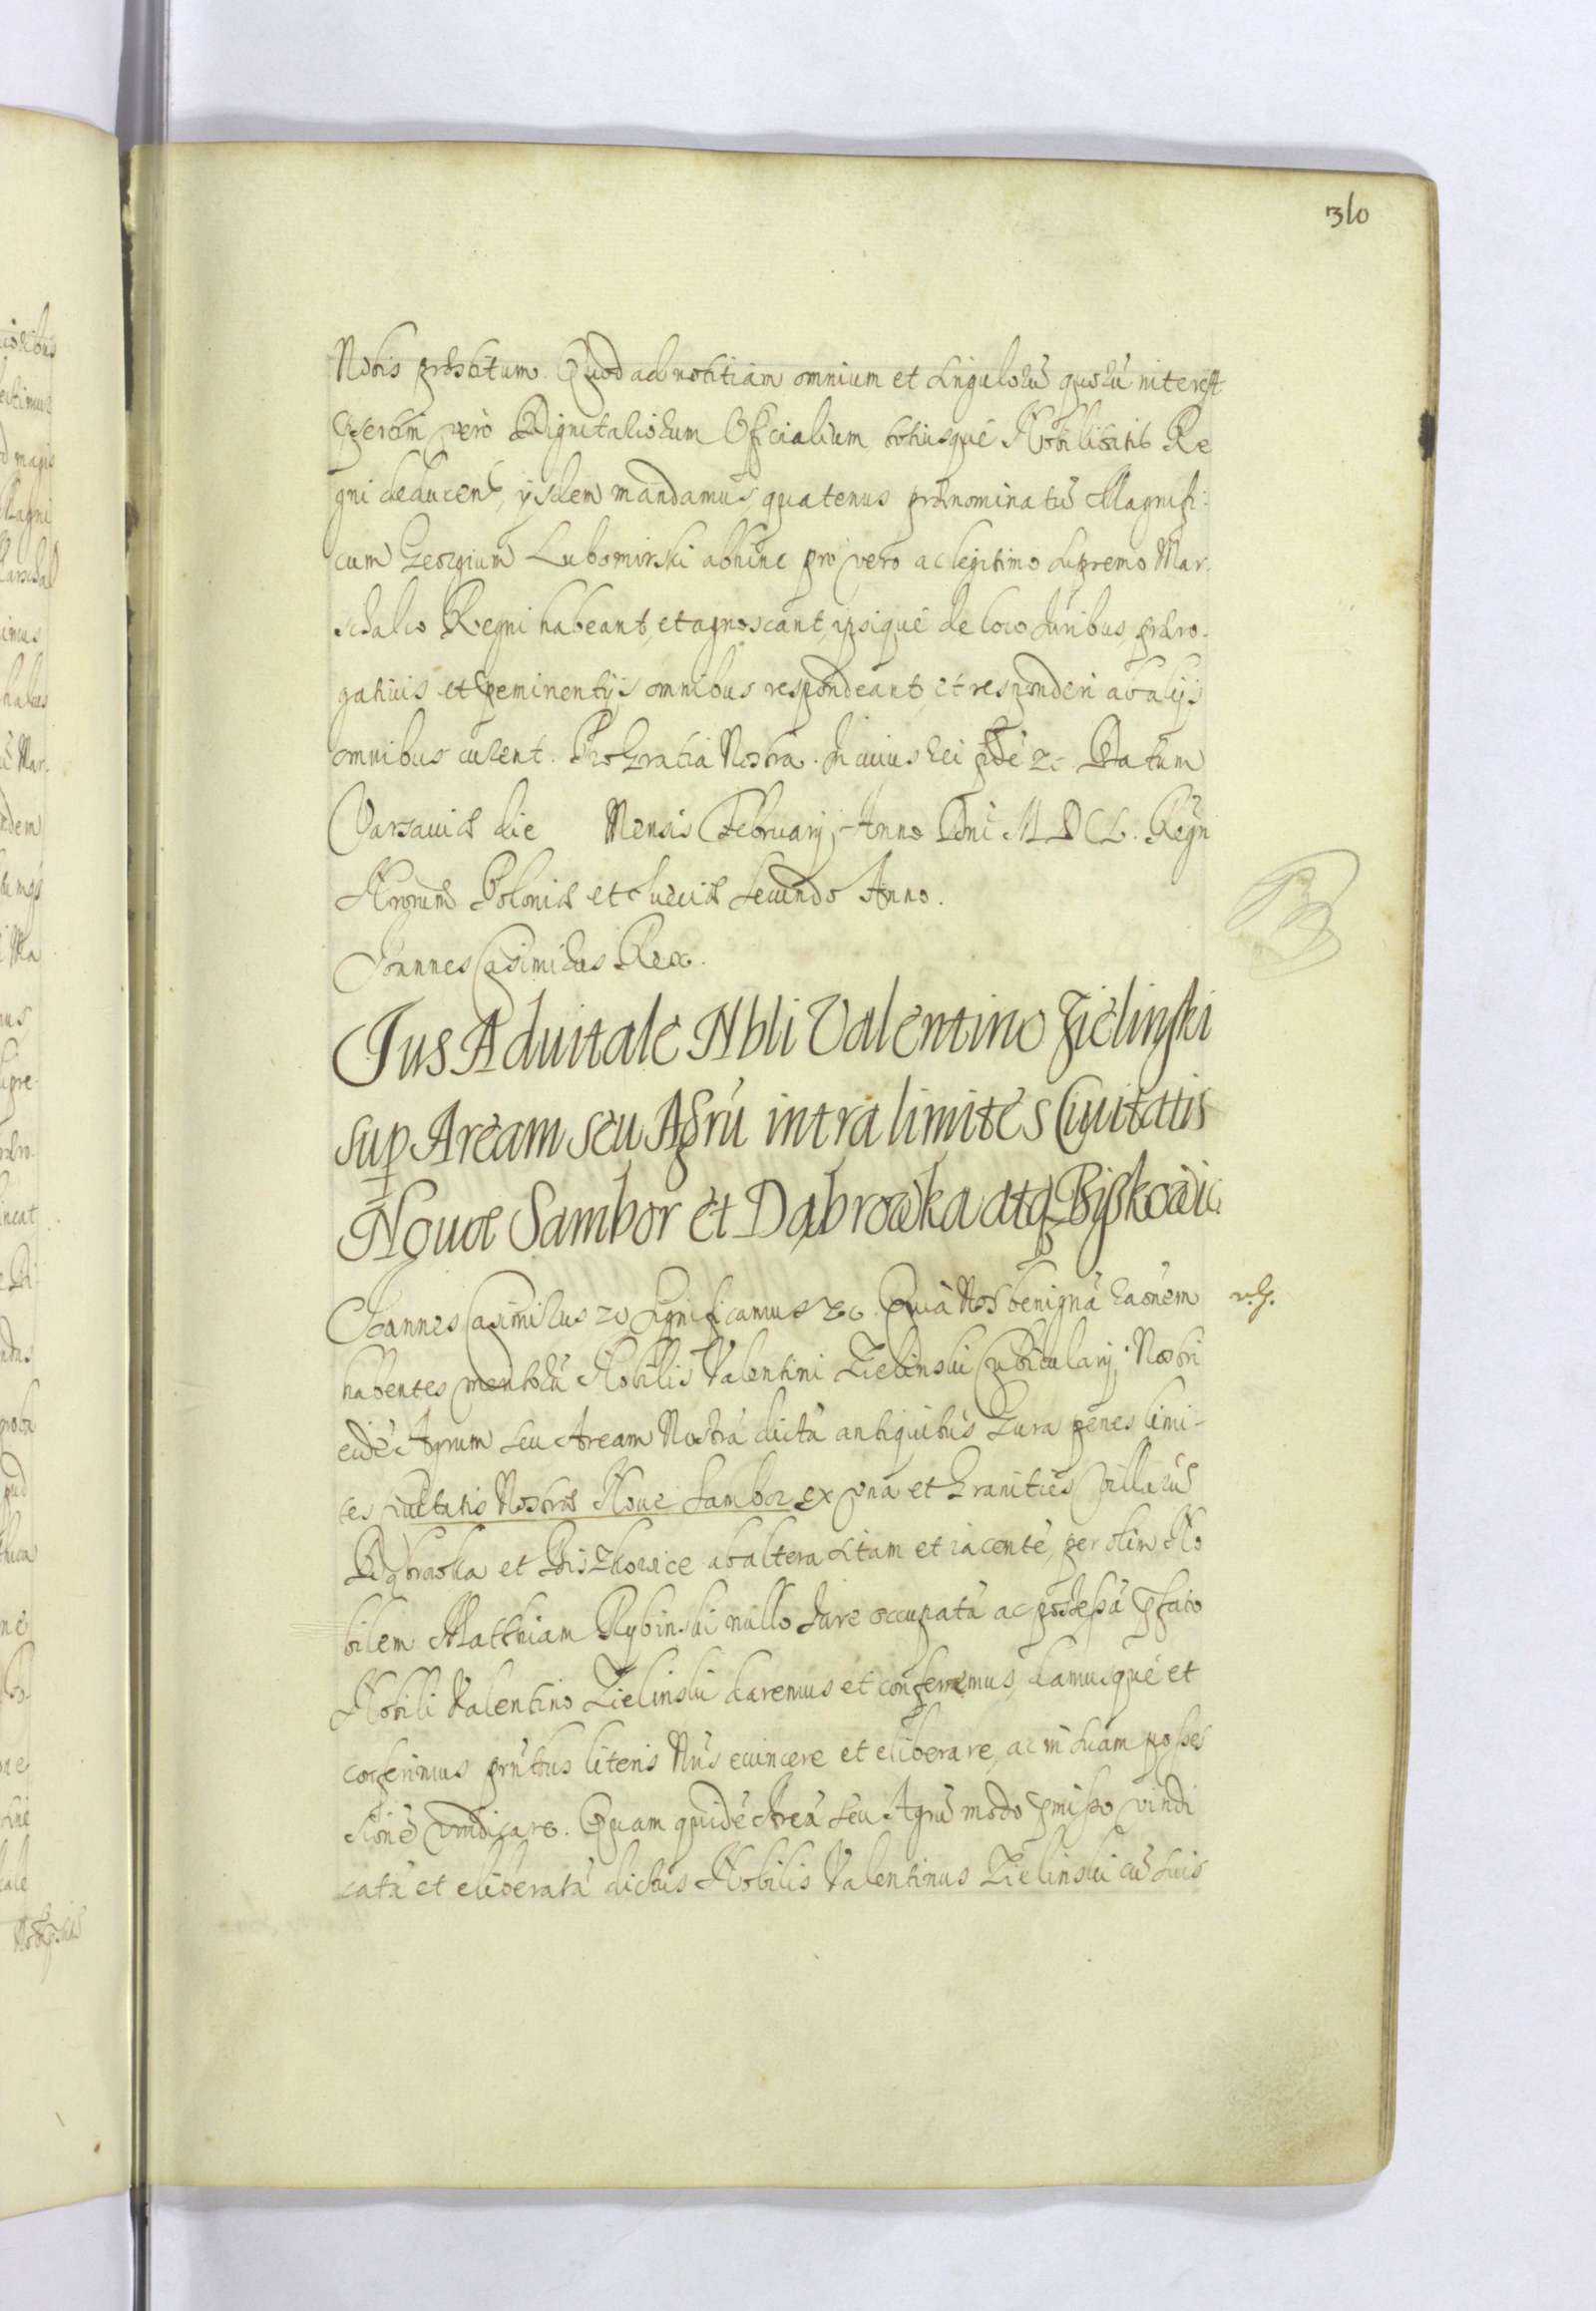 310
Nobis præstitum. Quod ad notitiam omnium et singulorũ quorũ interest
p̃sertim verò Dignitariorum Officialium totiusque Nobilitatis Re
gni deducentes, ijsdem mandamus, quatenus prænominatũ Magnifi:
cum Georgium Lubomirski abhinc pro vero ac legitimo Supremo Mar
schalco Regni habeant, et agnoscant, ipsique de loco Juribus, præro-
gatiuis et p̃eminentijs omnibus respondeant, et responderi ab alijs
omnibus curent. Pro Gratia Nostra. In cuius rei fidẽ &c. Datum
Varsauiæ die Mensis Februarij, Anno Dni M D C L. Regn
Nrorum Poloniæ et Sueciæ Secundo Anno.
Joannes Casimirus Rex.
Jus Aduitale Nbli Valentino Zielinski
sup Aream seu Agrũ intra limites Ciuitatis
Nouæ Sambor et Dąbrowka atq Biskowic
Joannes Casimirus &c Significamus &c. Quia Nos benignã raõnem
habentes meritorũ Nobilis Valentini Zielinski Cubicularij Nostri
eidẽ Agrum seu Aream Nostrã dictã antiquitus Gura penes limi-
tes Ciuitatis Nostræ Nouæ Sambor ex vna et Granities Villarũ
Dąbrowka et Biszkowice ab altera sitam et iacentẽ, per olim No
bilem Matthiam Rybinski nullo Jure occupatã ac possessã p̃fato
Nobili Valentino Zielinski daremus et conferremus, damusque et
conferimus prñtibus literis Nris euincere et eliberare, ac in suam posses
sionẽ vindicare. Quam quidẽ Areã seu Agrũ modo p̃misso vindi
catã et eliberatã dictus Nobilis Valentinus Zielinski cũ suis